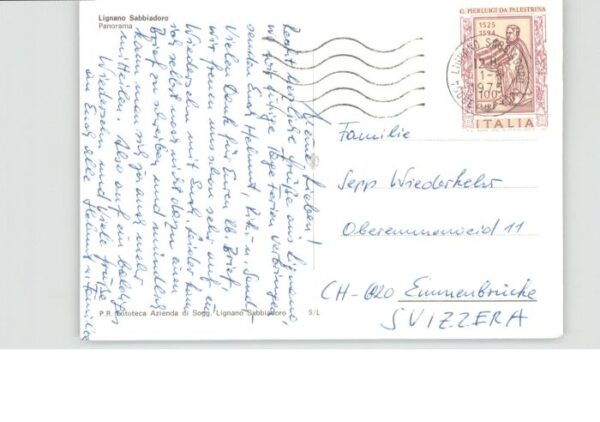 Lignano Sabbiadoro
Panorama
Meine Lieben!
Recht herzliche Grüße aus Lignano,
wo wir einige Tage Ferien verbringen
senden Euch Helmut, u.
Vielen Dank für Euren lb. Brief,
wir freuen uns schon sehr auf ein
Wiedersehen mit Euch. Leider kam
ich selbst noch nicht dazu einen
Brief zu schreiben, und mündlich
kann man sich ja auch mehr
mitteilen. Also auf ein baldiges
Wiedersehen und viele Grüße
an Euch alle Helmut u. Familie
P.R. Fototeca Azienda di Sogg. Lignano Sabbiadoro 9/L
G. PIERLUIGI DA PALESTRINA
1525
1594
100
ITALIA
Familie
Sepp Wiederkehr
Oberemmenweid 11
CH-6020 Emmenbrücke
SVIZZERA